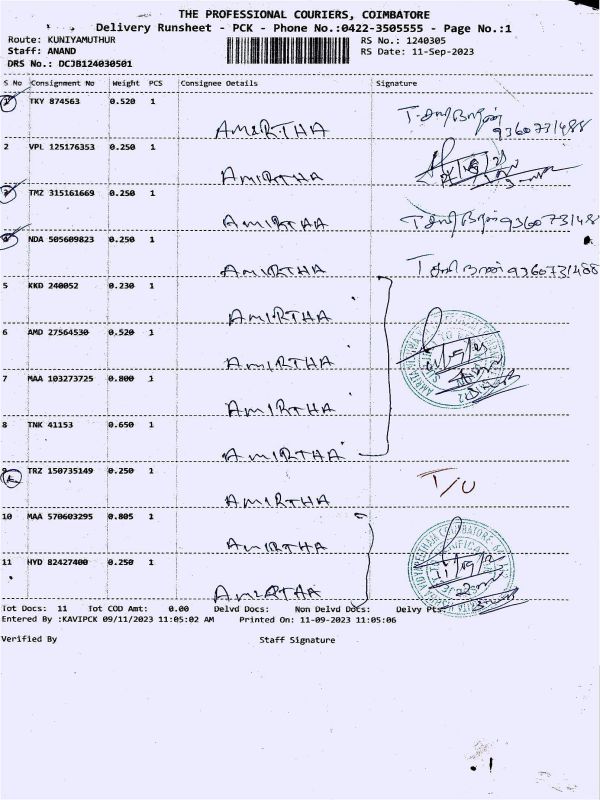 THE PROFESSIONAL COURIERS, COIMBATORE
Delivery Runsheet - PCK - Phone No.:0422-3505555 - Page No.:1
Route: KUNIYAMUTHUR RS No.: 1240305
Staff: ANAND RS Date: 11-Sep-2023
DRS No.: DCJB124030501
S No Consignment No Weight PCS Consignee Details Signature
1 TKY 874563 0.520 1
AMIRTHA 9360731488
2 VPL 125176353 0.250 1
AMIRTHA
3 TMZ 315161669 0.250 1
AMIRTHA 9360731488
4 NDA 505609823 0.250 1
AMIRTHA 9360731488
5 KKD 240052 0.230 1
AMIRTHA
6 AMD 27564530 0.520 1
AMIRTHA
7 MAA 103273725 0.800 1
AMIRTHA
8 TNK 41153 0.650 1
AMIRTHA
9 TRZ 150735149 0.250 1 T/U
AMIRTHA
10 MAA 570603295 0.805 1
AMIRTHA
11 HYD 82427400 0.250 1
AMIRTHA
Tot Docs: 11 Tot COD Amt: 0.00 Delvd Docs: Non Delvd Docs: Delvy Pts:
Entered By :KAVIPCK 09/11/2023 11:05:02 AM Printed On: 11-09-2023 11:05:06
Verified By Staff Signature